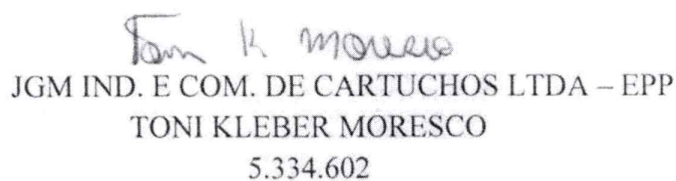 Toni K Moresco
JGM IND. E COM. DE CARTUCHOS LTDA – EPP
TONI KLEBER MORESCO
5.334.602